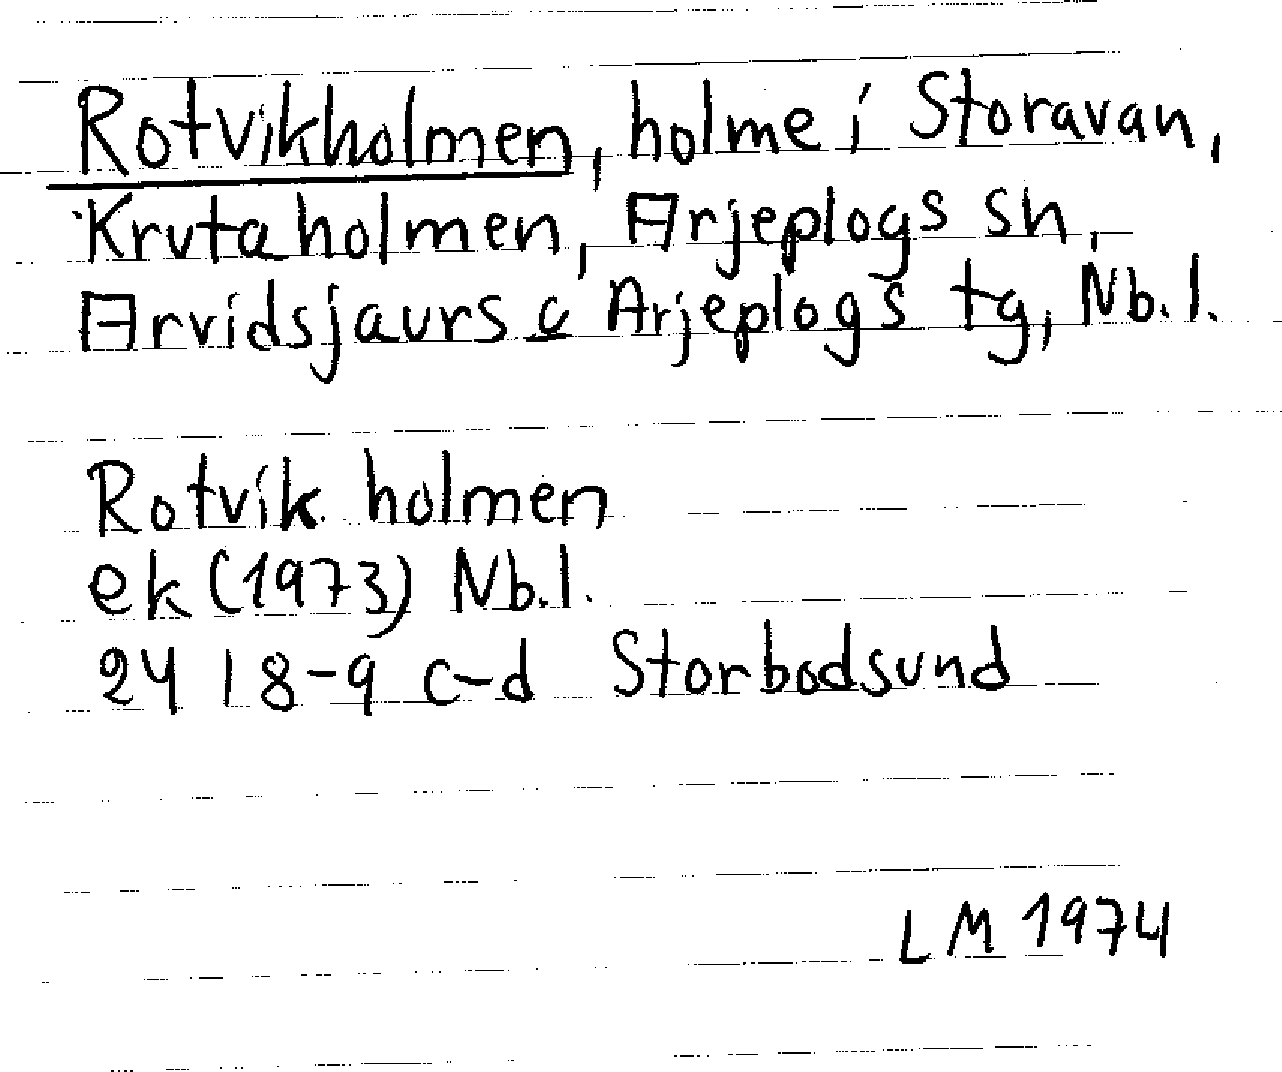 Rotvikholmen, holme i Storavan,
Krutaholmen, Arjeplogs sn,
Arvidsjaurs o Arjeplogs tg, Nb. l.
Rotvik holmen
ek (1973) Nb.l.
24 I 8-9 c-d Storbodsund
LM 1974